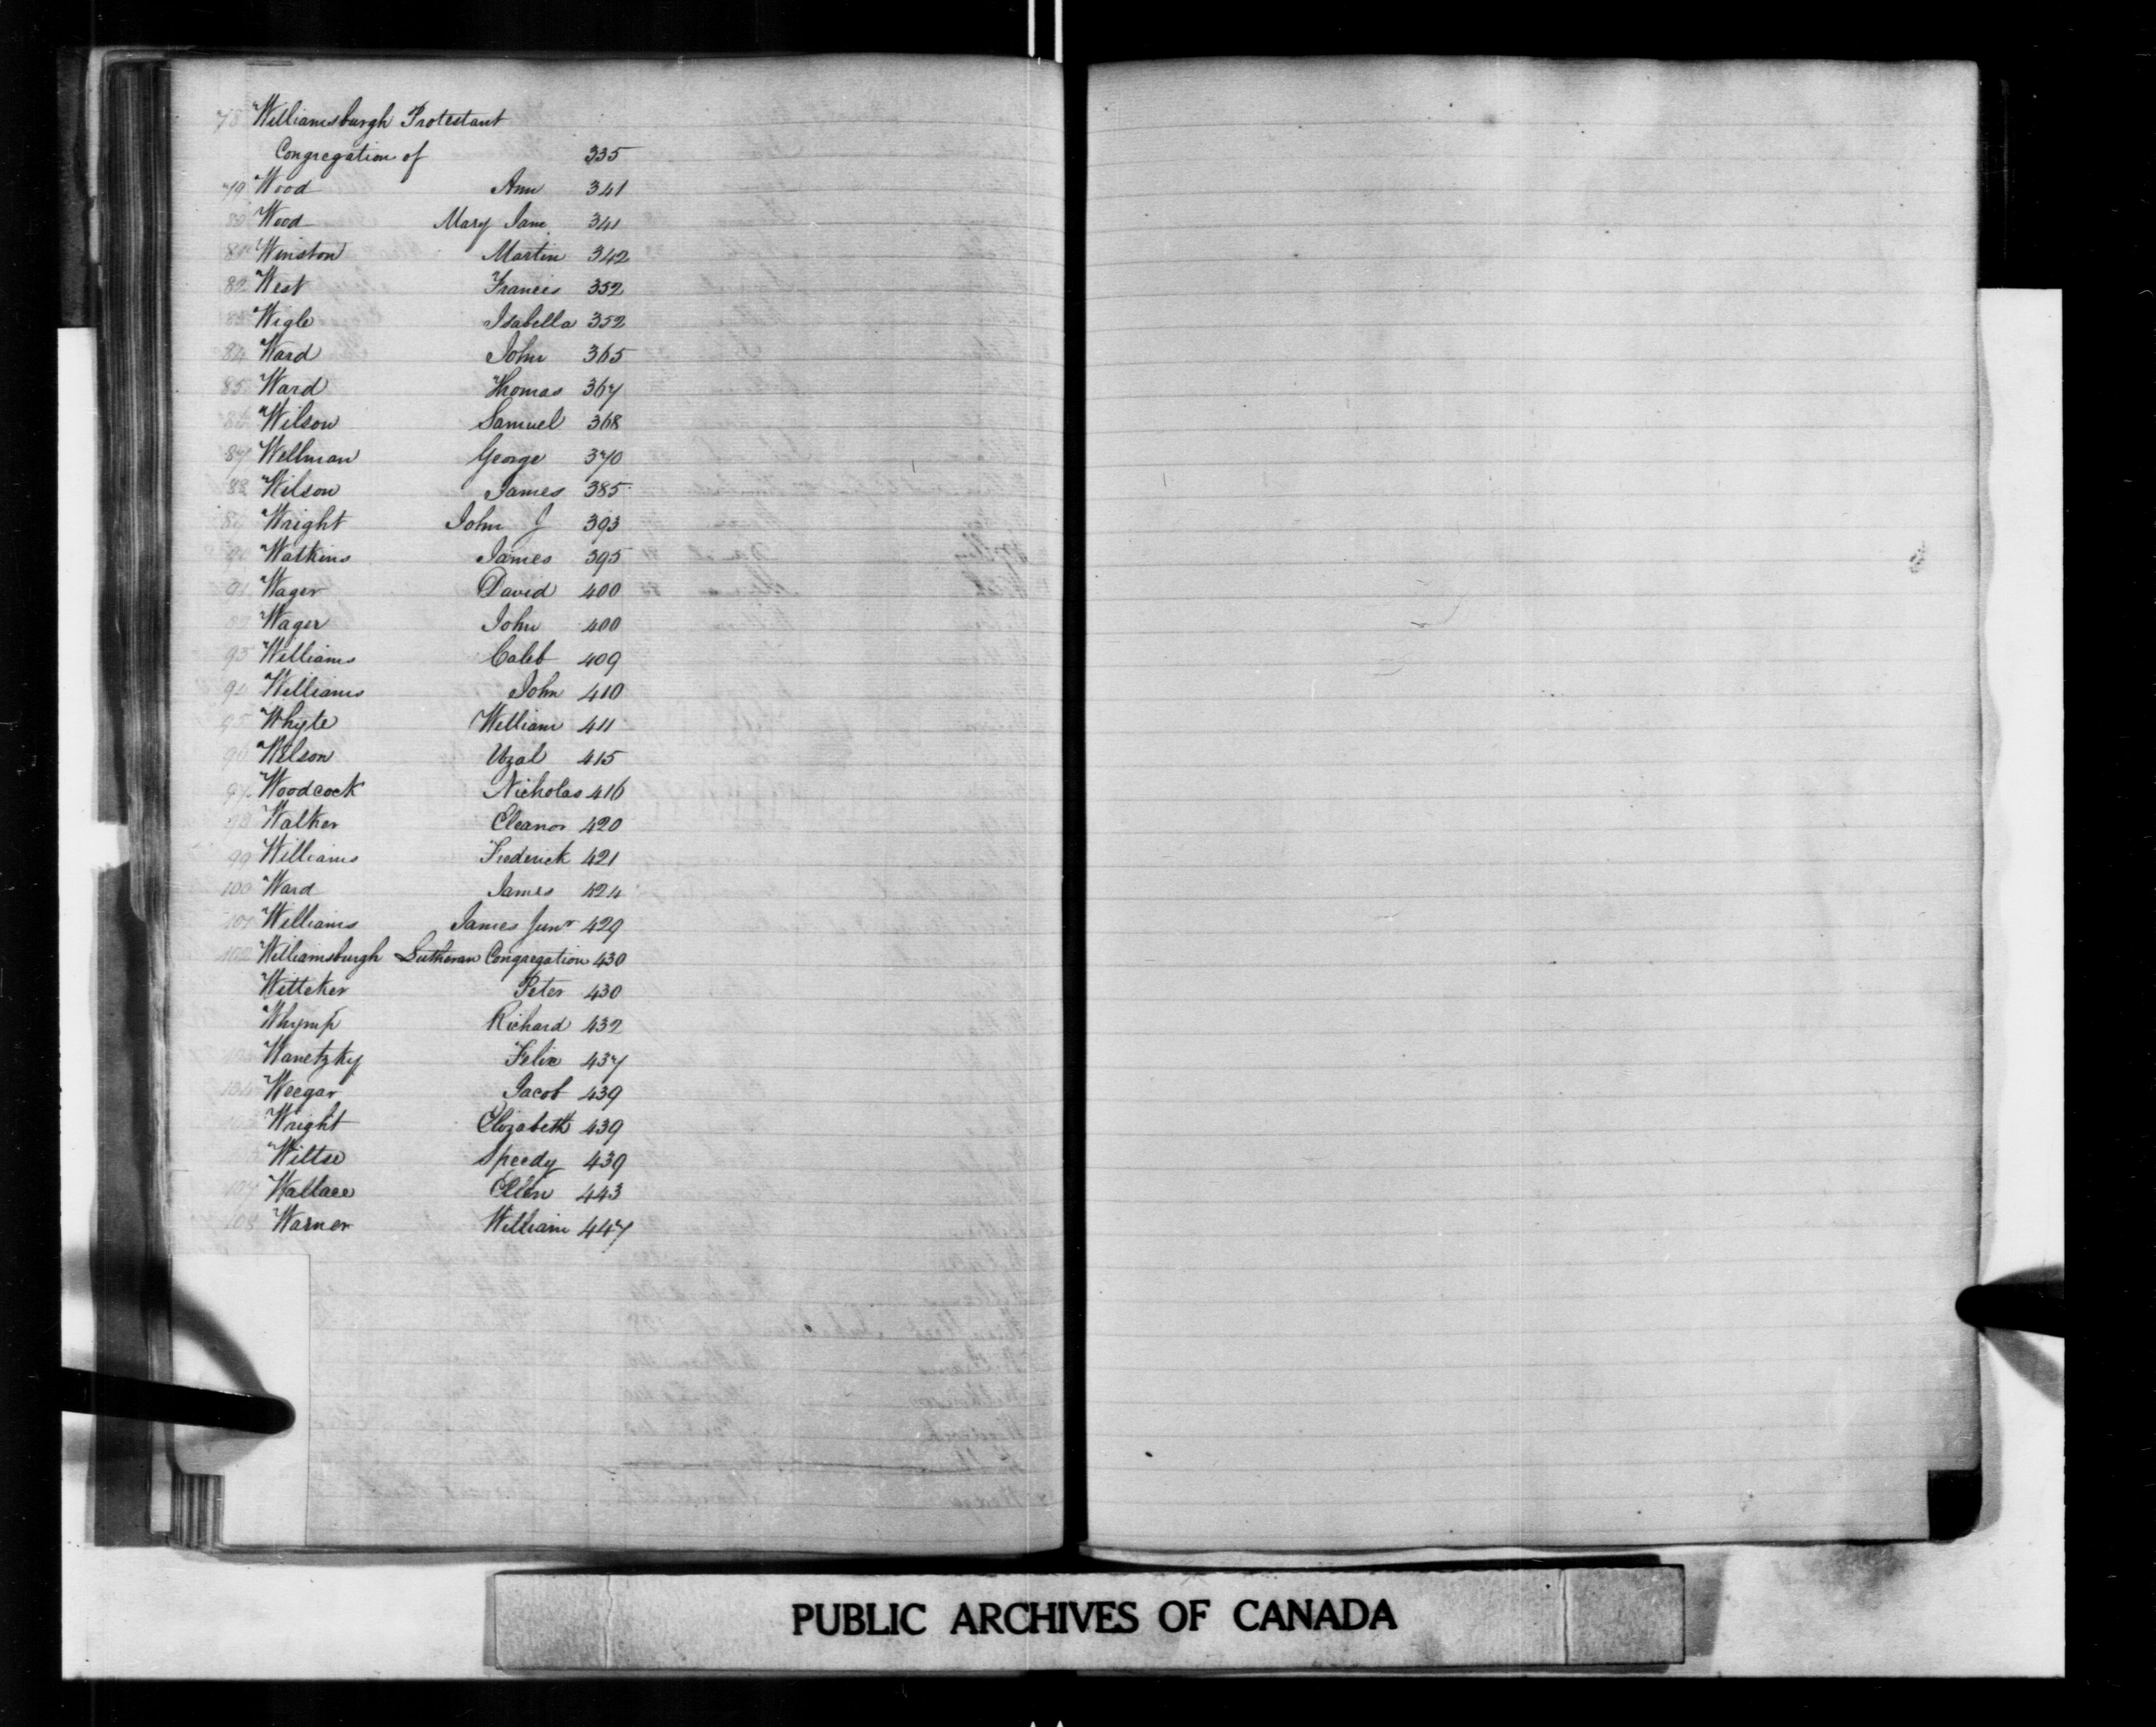 78 Williamsburgh Protestant
Congregation of 335
79 Wood Ann 341
80 Wood Mary Jane 341
81 Winston Martin 342
82 West Francis 352
83 Wigle Isabella 352
84 Ward John 365
85 Ward Thomas 367
86 Wilson Samuel 368
87 Wellman George 370
88 Wilson James 385
89 Wright John J 393
90 Watkins James 395
91 Wager David 400
Wager John 400
93 Williams Caleb 409
94 Williams John 410
95 Whyte William 411
96 Wilson Uzal 415
97 Woodcock Nicholas 416
98 Walker Eleanor 420
99 Williams Frederick 421
100 Ward James 424
101 Williams James Junr 429
102 Williamsburgh Lutheran Congregation 430
Witteker Peter 430
Whymp Richard 432
103 Wanetzky Felix 437
104 Weegar Jacob 439
105 Wright Elizabeth 439
Wiltse Speedy 439
107 Wallace Ellen 443
108 Warner William 447
PUBLIC ARCHIVES OF CANADA